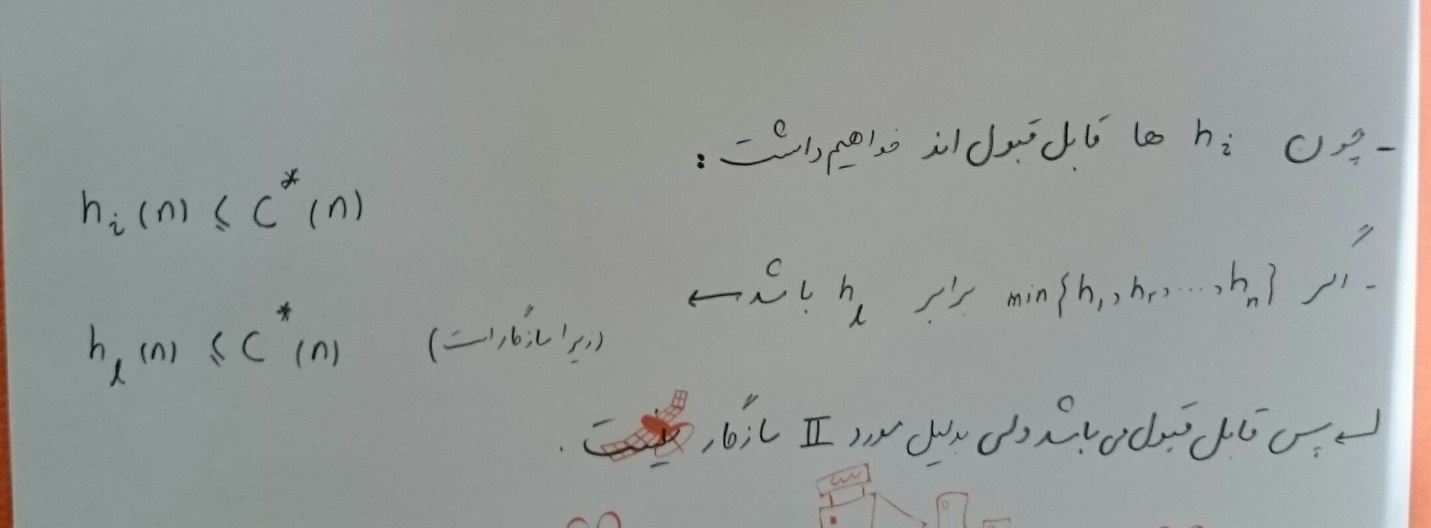 - چون hᵢ ها قابل قبول اند خواهیم داشت :
hᵢ(n) ≤ C*(n)
- اگر min{h₁, h₂, ..., hₙ} برابر hₗ باشد ←
hₗ(n) ≤ C*(n) (زیرا سازگار است)
پس قابل قبول می باشد ولی بدلیل مورد II سازگار نیست .